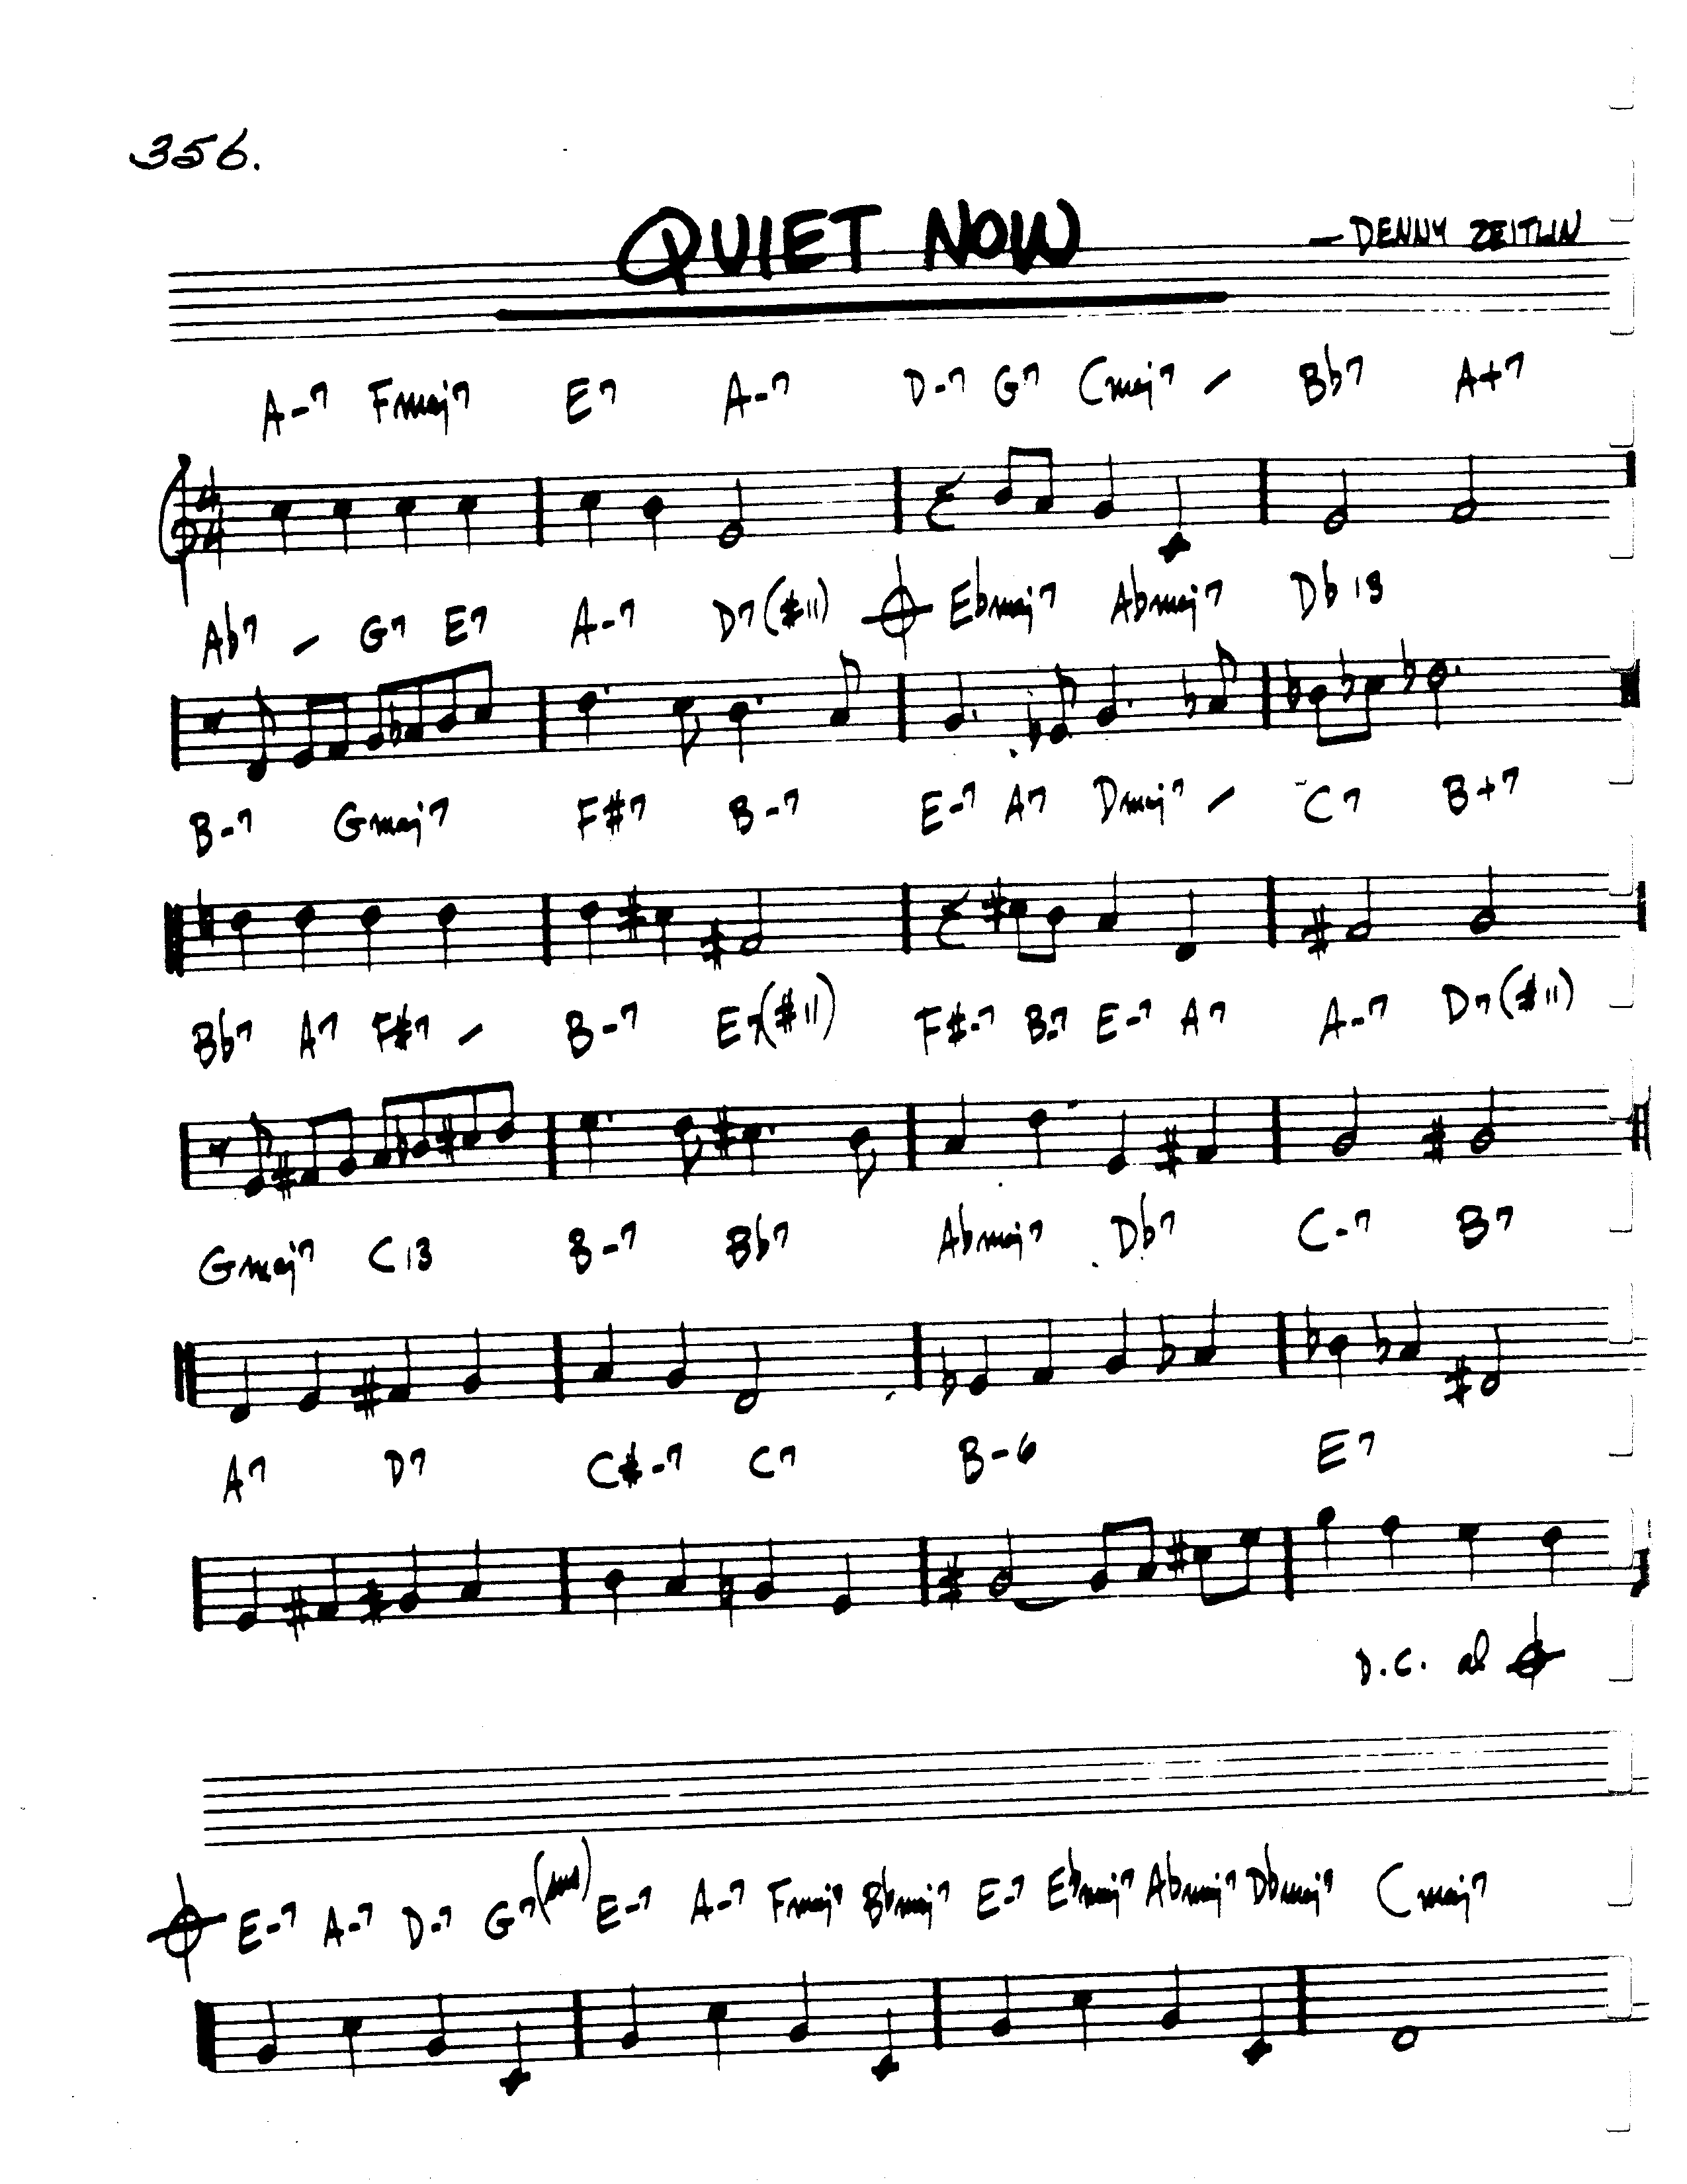 356.
QUIET NOW
— DENNY ZEITLIN
A-7 Fmaj7 E7 A-7 D-7 G7 Cmaj7 – Bb7 A+7
4 4
Ab7 – G7 E7 A-7 D7(#11) Ebmaj7 Abmaj7 Db13
B-7 Gmaj7 F#7 B-7 E-7 A7 Dmaj7 – C7 B+7
Bb7 A7 F#7 – B-7 E7(#11) F#-7 B-7 E-7 A7 A-7 D7(#11)
Gmaj7 C13 B-7 Bb7 Abmaj7 Db7 C-7 B7
A7 D7 C#-7 C7 B-6 E7
D.C. al
E-7 A-7 D-7 G7(sus) E-7 A-7 Fmaj7 Bbmaj7 E-7 Ebmaj7 Abmaj7 Dbmaj7 Cmaj7